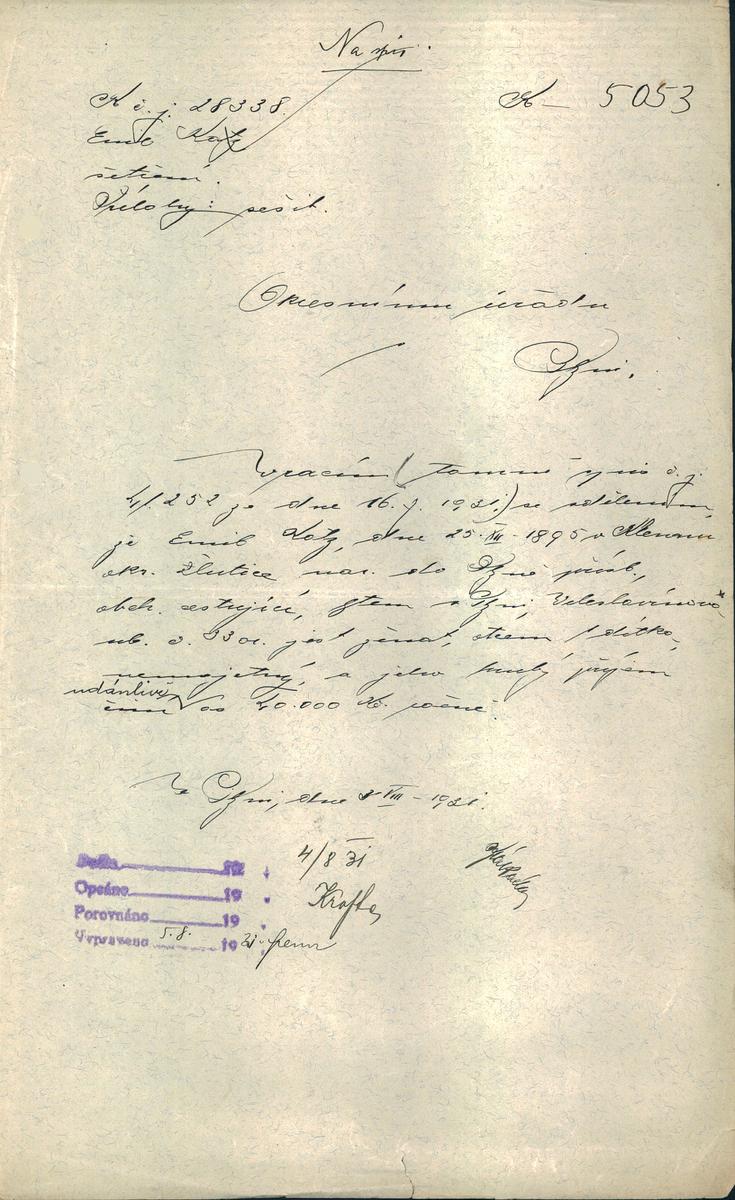 Na spis.
K č. j. 28338.
K – 5053
Emil Katz
šetření.
Přílohy: sešit.
Okresnímu úřadu
v Plzni.
Vracím (tamní spis č. j.
4/252 ze dne 16. 7. 1931.) se sdělením,
že Emil Katz, dne 25. XII. 1895 v
okr. Žlutice nar. do Plzně přísl.,
obch. cestující, bytem v Plzni, Veleslavínova
ul. č. 33 jest ženat, otcem 1 dítka,
nemajetný, a jeho hrubý příjem
udánlivě
činí 40.000 Kč ročně.
V Plzni, dne VIII – 1931.
4/8 31
Došlo 19
Opsáno 19
Krofta
Porovnáno 19
Vypraveno 5.8. 1931